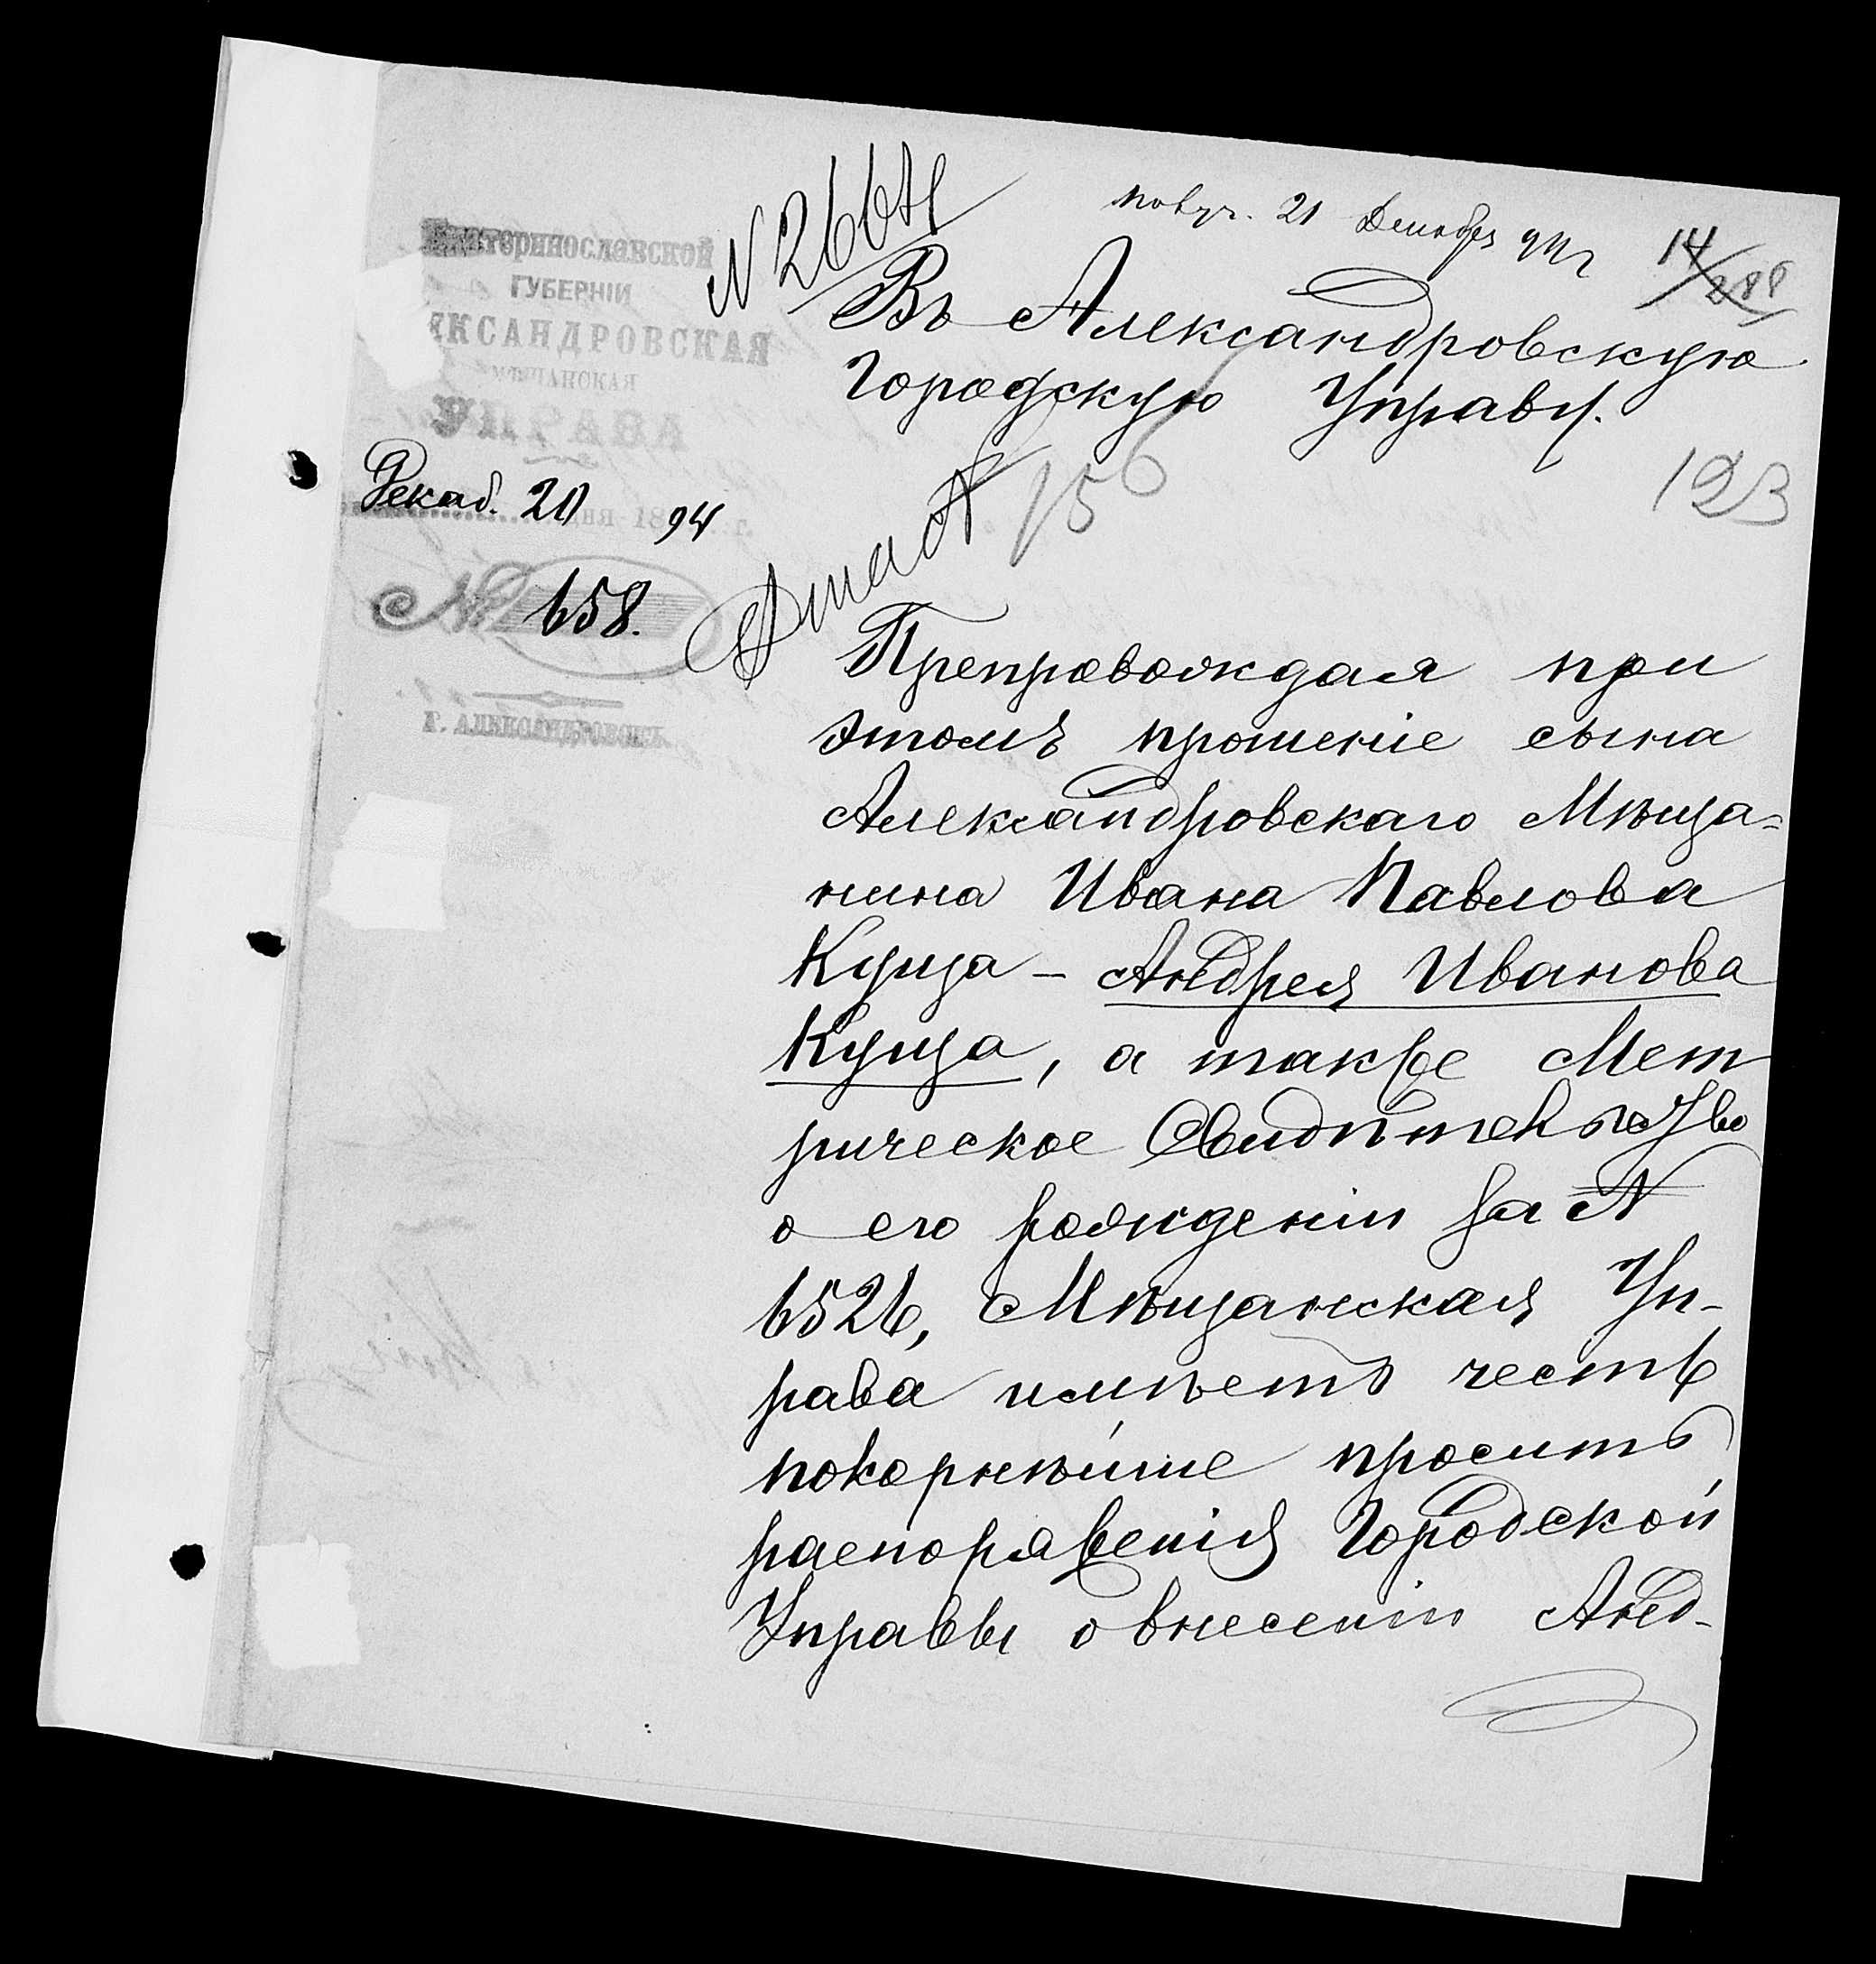 Екатеринославской
ГУБЕРНІИ
ЕКСАНДРОВСКАЯ
МѢЩАНСКАЯ
УПРАВА
Декаб. 20 дня 1894 г.
№ 658.
Г. АЛЕКСАНДРОВСКЪ
N 2664
получ. 21 Декабря 94 г
14
288
Въ Александровскую
Городскую Управу.
123
156
Препровождая при
этомъ прошеніе сына
Александровскаго Мѣща=
нина Ивана Павлова
Куща – Андрея Иванова
Куща, а также Мет
рическое Свидѣтельство
о его рожденіи за N
6526, Мѣщанская Уп-
рава имѣетъ честь
покорнѣйше проситъ
распоряженія Городской
Управы о внесеніи Анд-